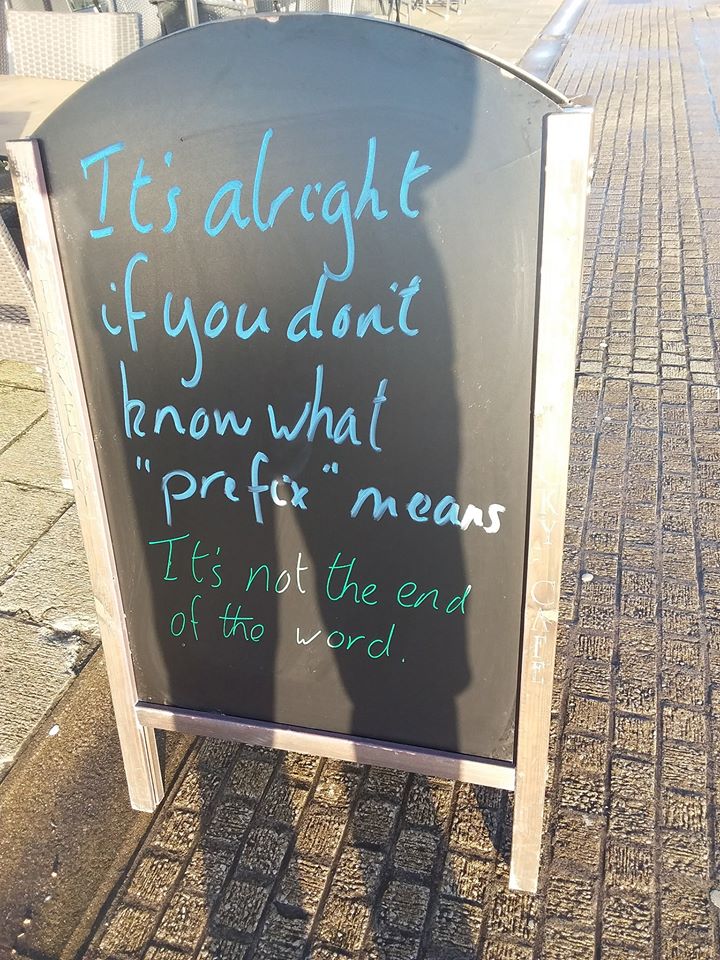 It's alright
if you don't
know what
"prefix" means
It's not the end
of the word.
KY CAFE